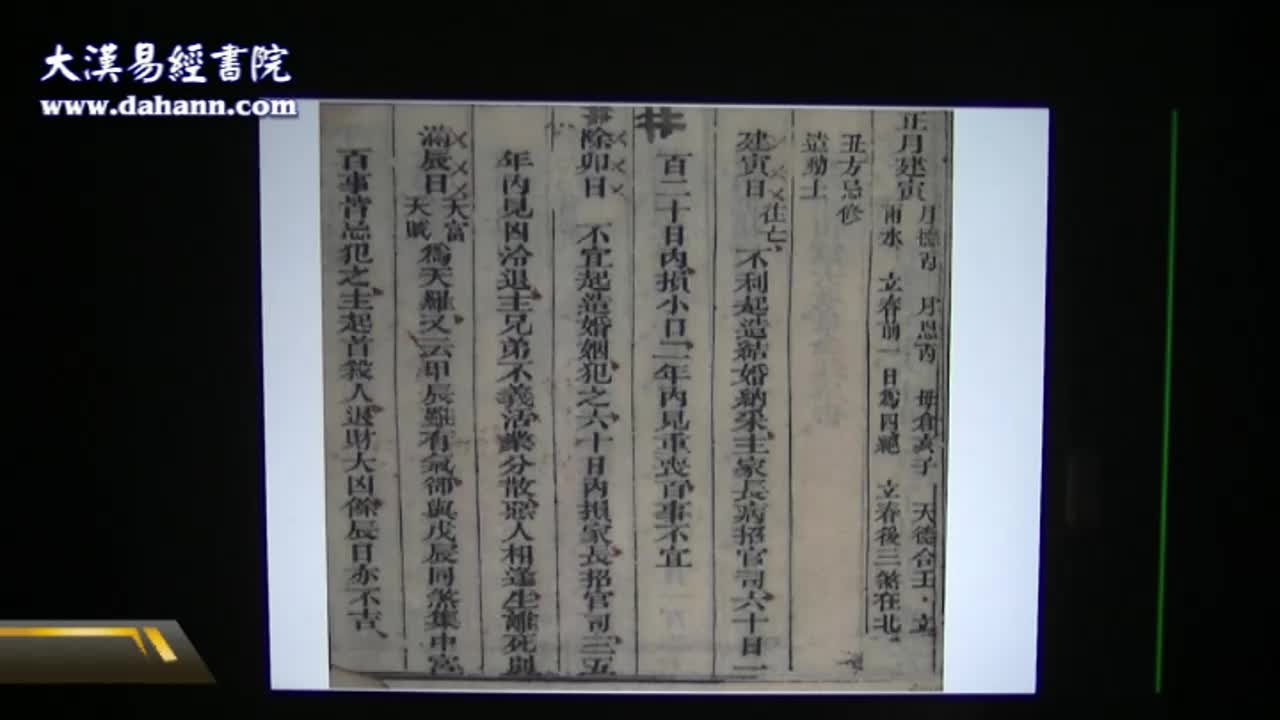 大漢易經書院
www.dahann.com
正月建寅
月德丙 月恩丙 母倉亥子 天德合壬 立
雨水 立春前一日為四絕 立春後三煞在北
丑方忌修
造動土
建寅日
往亡
不利起造結婚納采主家長病招官司六十日一
百二十日內損小口二年內見重喪百事不宜
除卯日
不宜起造婚姻犯之六十日內損家長招官司三五
年內見凶冷退主兄弟不義活業分散惡人相逢生離死別
滿辰日
天富
天賊
為天羅又云甲辰雖有氣卻與戊辰同煞集中宮
百事皆忌犯之主起首殺人退財大凶餘辰日亦不吉